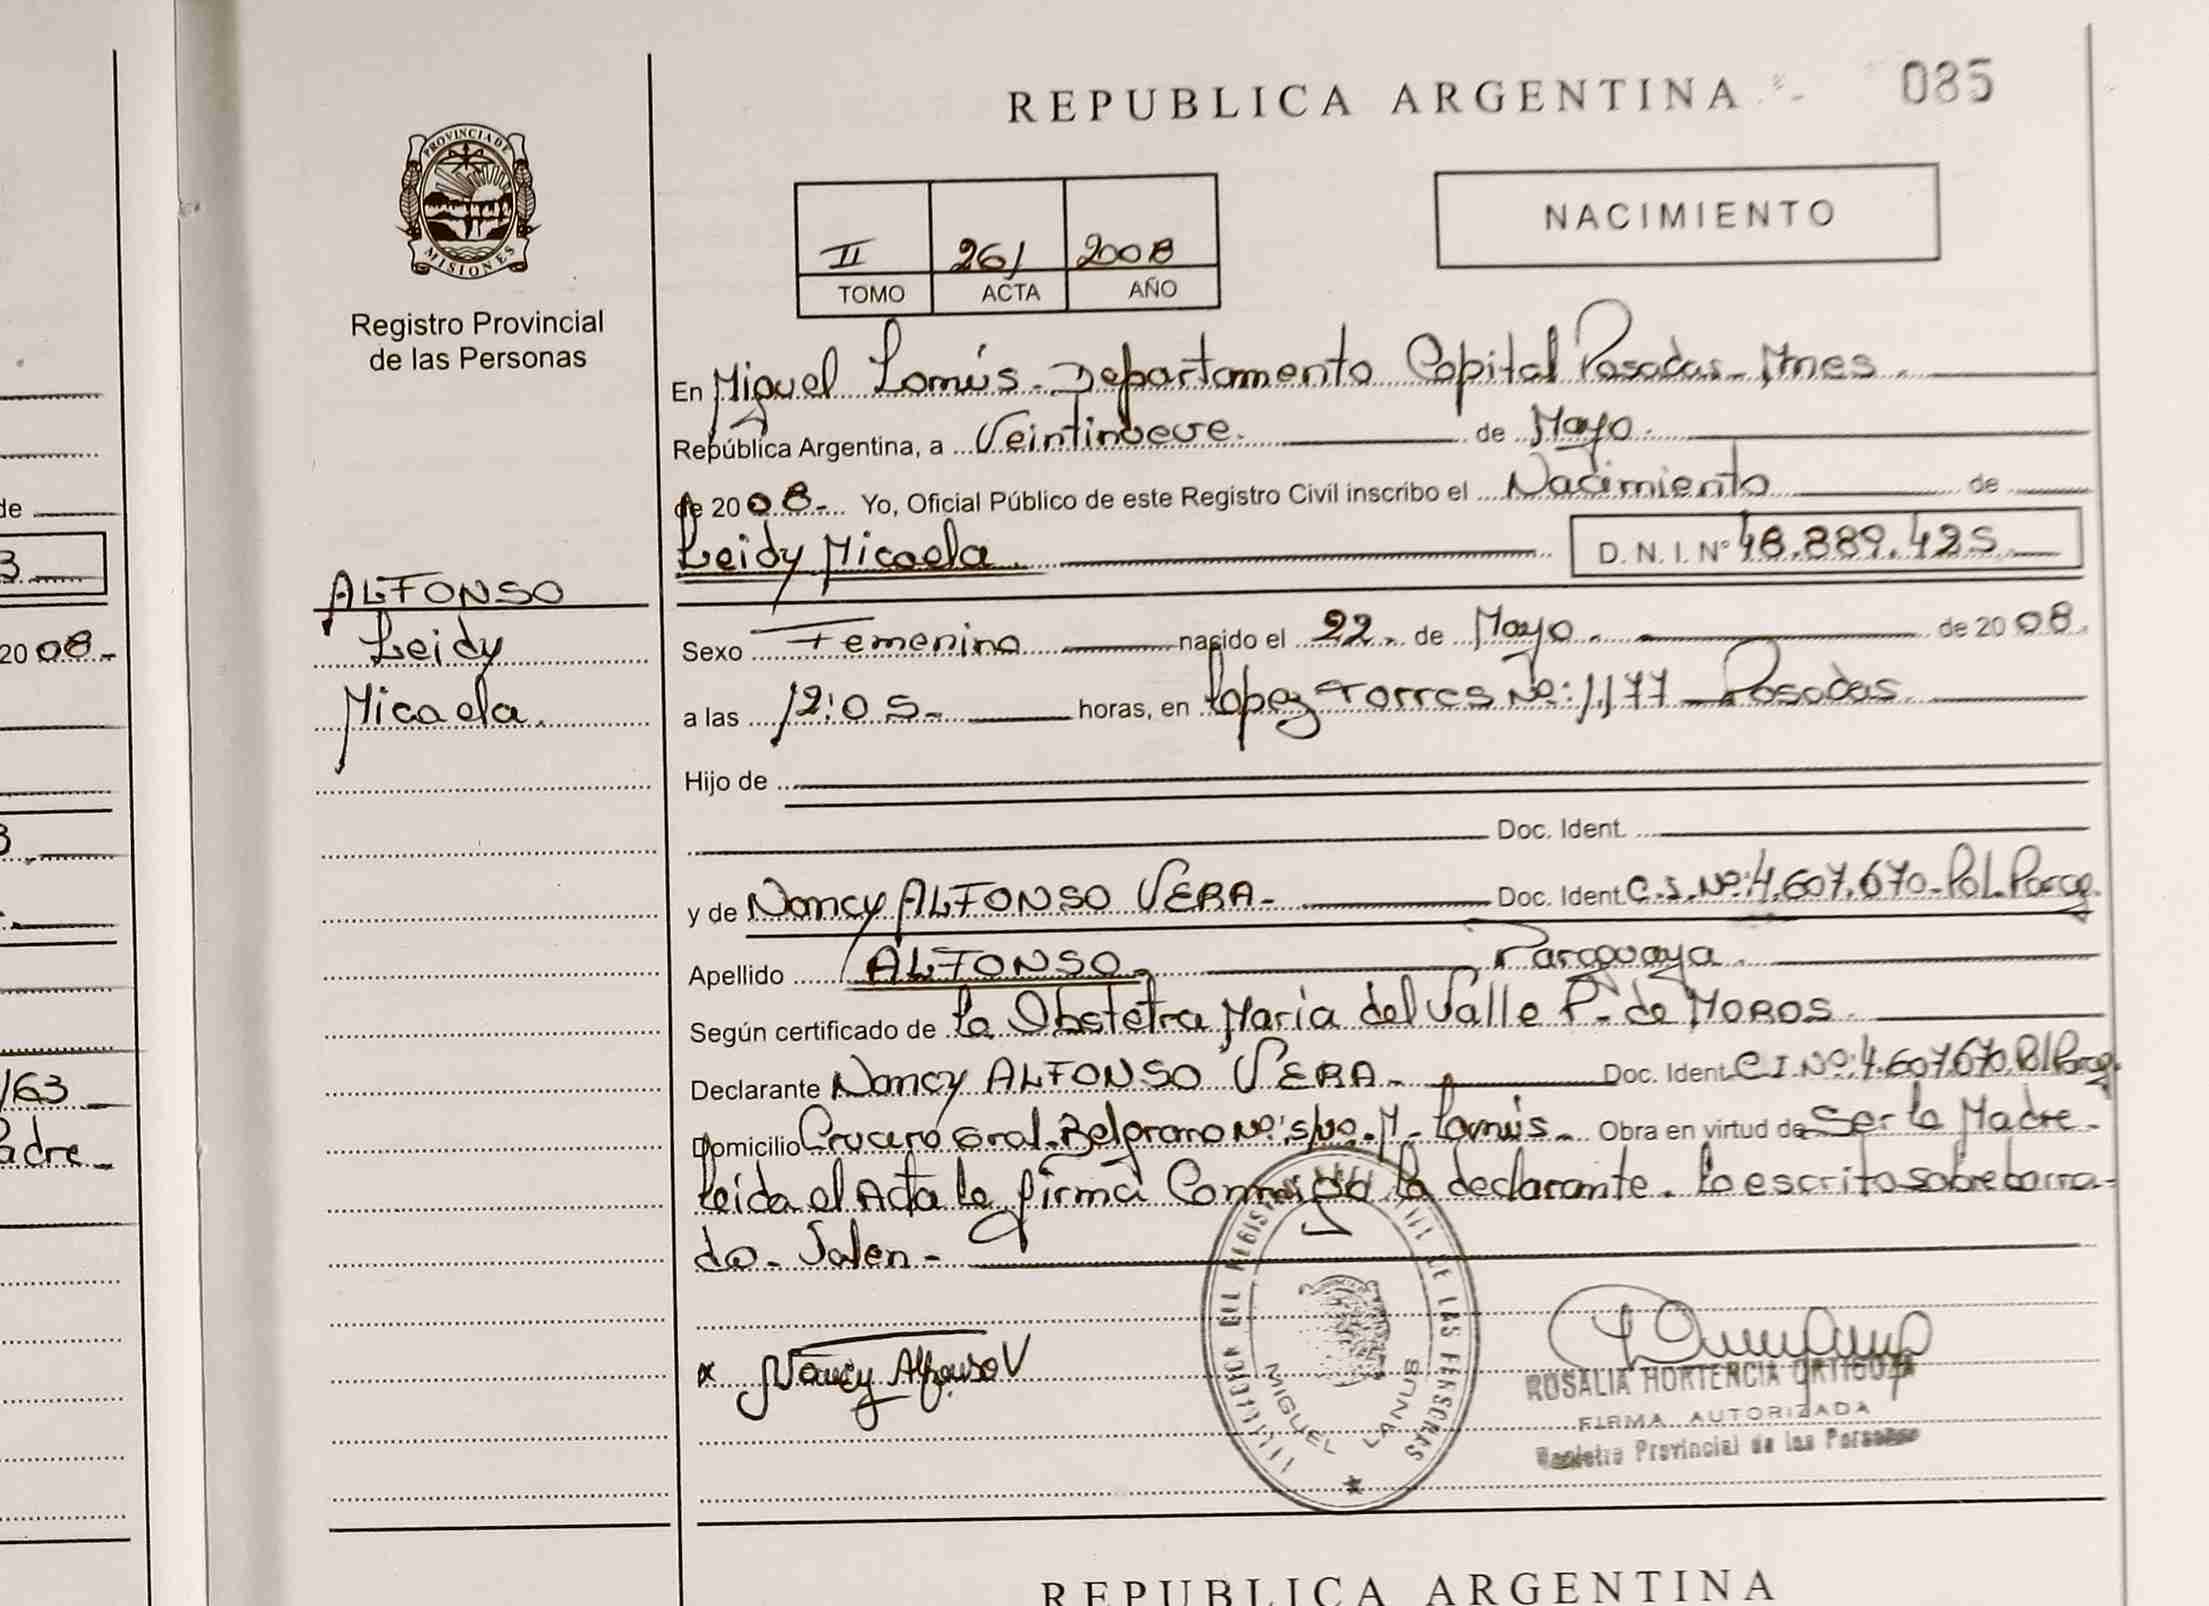 REPUBLICA ARGENTINA
085
PROVINCIA DE
MISIONES
Registro Provincial
de las Personas
NACIMIENTO
II 261 2008
TOMO ACTA AÑO
En Miguel Lanús - Departamento Capital Posadas - Mnes.
República Argentina, a Veintinueve. de Mayo.
de 2008.- Yo, Oficial Público de este Registro Civil inscribo el Nacimiento de
Leidy Micaela. D. N. I. Nº 48.889.425
ALFONSO
Leidy
Micaela.
Sexo Femenino nacido el 22. de Mayo. de 2008.
a las 12:05- horas, en Lopez Torres Nº: 1.177 - Posadas
Hijo de
Doc. Ident.
y de Nancy ALFONSO VERA- Doc. Ident. C.I. Nº: 4.607.670- Pol. Parag.
Apellido ALFONSO. Paraguaya.
Según certificado de la Obstetra Maria del Valle P. de MOROS.
Declarante Nancy ALFONSO VERA- Doc. Ident. C I. Nº: 4.607.670. Pol Parag.
Domicilio Crucero Gral. Belgrano Nº: s/nº. M. Lanús- Obra en virtud de Ser la Madre-
Leida el Acta la firma Conmigo la declarante. Lo escrito sobre borra-
do- Valen-
x Nancy Alfonso V
REGISTRO PROVINCIAL DE LAS PERSONAS
MIGUEL LANUS
ROSALIA HORTENCIA ORTIGOZA
FIRMA AUTORIZADA
Registro Provincial de las Personas
REPUBLICA ARGENTINA
de
3
2008.-
3
163
adre-